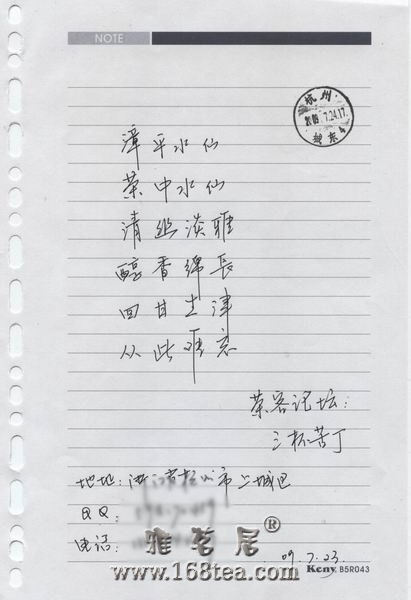 NOTE
杭州
7.24.17
城东4
漳平水仙
茶中水仙
清幽淡雅
醇香绵长
回甘生津
从此难忘
茶客论坛:
三杯苦丁
地址: 市上城区
QQ:
电话:
09.7.23
雅茗居®
www.168tea.com
Keny B5R043